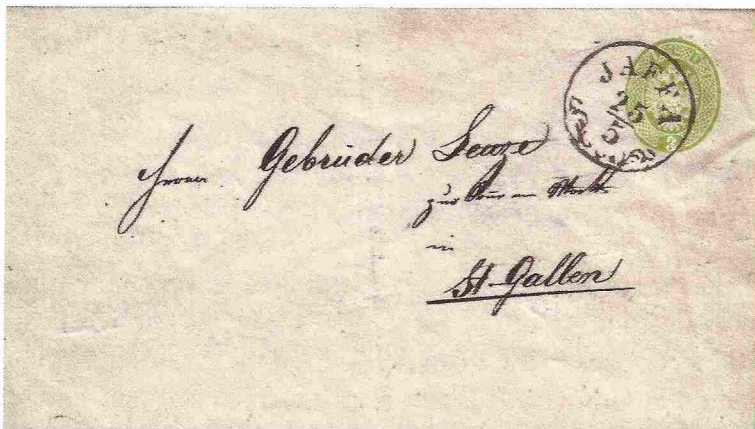 JAFFA
25
5
Herren Gebrüder Lenze
zur
in
St. Gallen